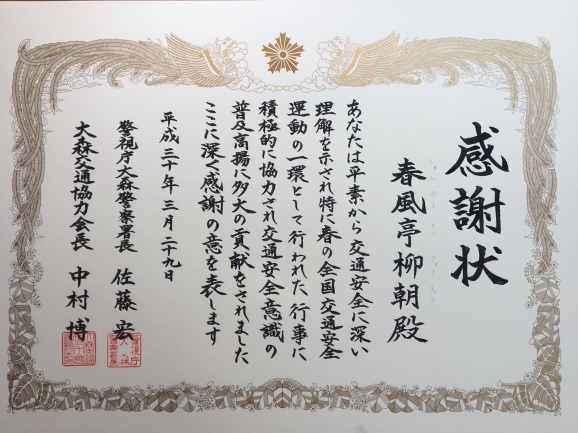 感謝状
春風亭柳朝殿
あなたは平素から交通安全に深い
理解を示され特に春の全国交通安全
運動の一環として行われた行事に
積極的に協力され交通安全意識の
普及高揚に多大の貢献をされました
ここに深く感謝の意を表します
平成三十年三月二十九日
警視庁大森警察署長 佐藤 宏
大森交通協力会長 中村 博